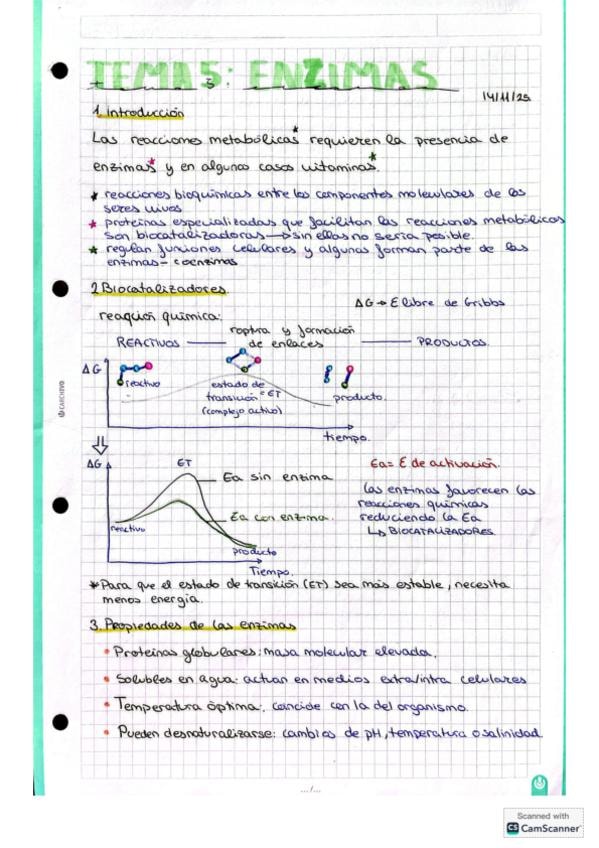 TEMA 5: ENZIMAS
14/11/25
1. introducción
Las reacciones metabólicas* requieren la presencia de
enzimas* y en algunos casos vitaminas*.
* reacciones bioquímicas entre los componentes moleculares de los
seres vivos
* proteínas especializadas que facilitan las reacciones metabólicas
son biocatalizadoras → sin ellas no sería posible.
* regulan funciones celulares y algunas forman parte de las
enzimas - coenzimas
2 Biocatalizadores
ΔG → E libre de Gribbs
reacción química:
ruptura y formación
REACTIVOS — de enlaces — PRODUCTOS
ΔG
reactivo
estado de
transición = ET
(complejo activo)
producto.
tiempo.
ΔG
ET
Ea sin enzima
Ea con enzima.
reactivo
producto
Tiempo.
Ea = E de activación.
Las enzimas favorecen las
reacciones químicas
reduciendo la Ea
↳ BIOCATALIZADORES
* Para que el estado de transición (ET) sea más estable, necesita
menos energía.
3. Propiedades de las enzimas
• Proteínas globulares: masa molecular elevada.
• Solubles en agua: actúan en medios extra/intra celulares
• Temperatura óptima: coincide con la del organismo.
• Pueden desnaturalizarse: cambios de pH, temperatura o salinidad.
.../...
CARCHIVO
Scanned with
CS CamScanner